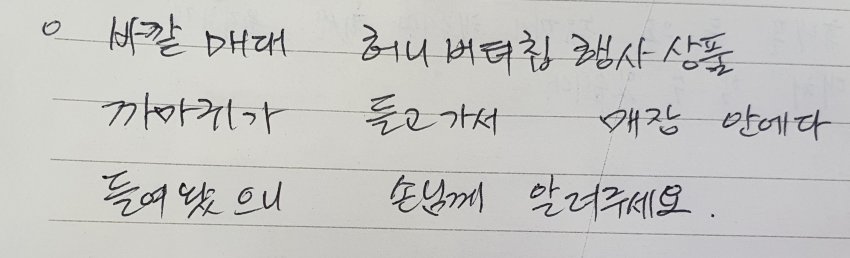 ○ 바깥 매대 허니버터칩 행사상품
까마귀가 들고가서 매장 안에다
들여놨으니 손님께 알려주세요.